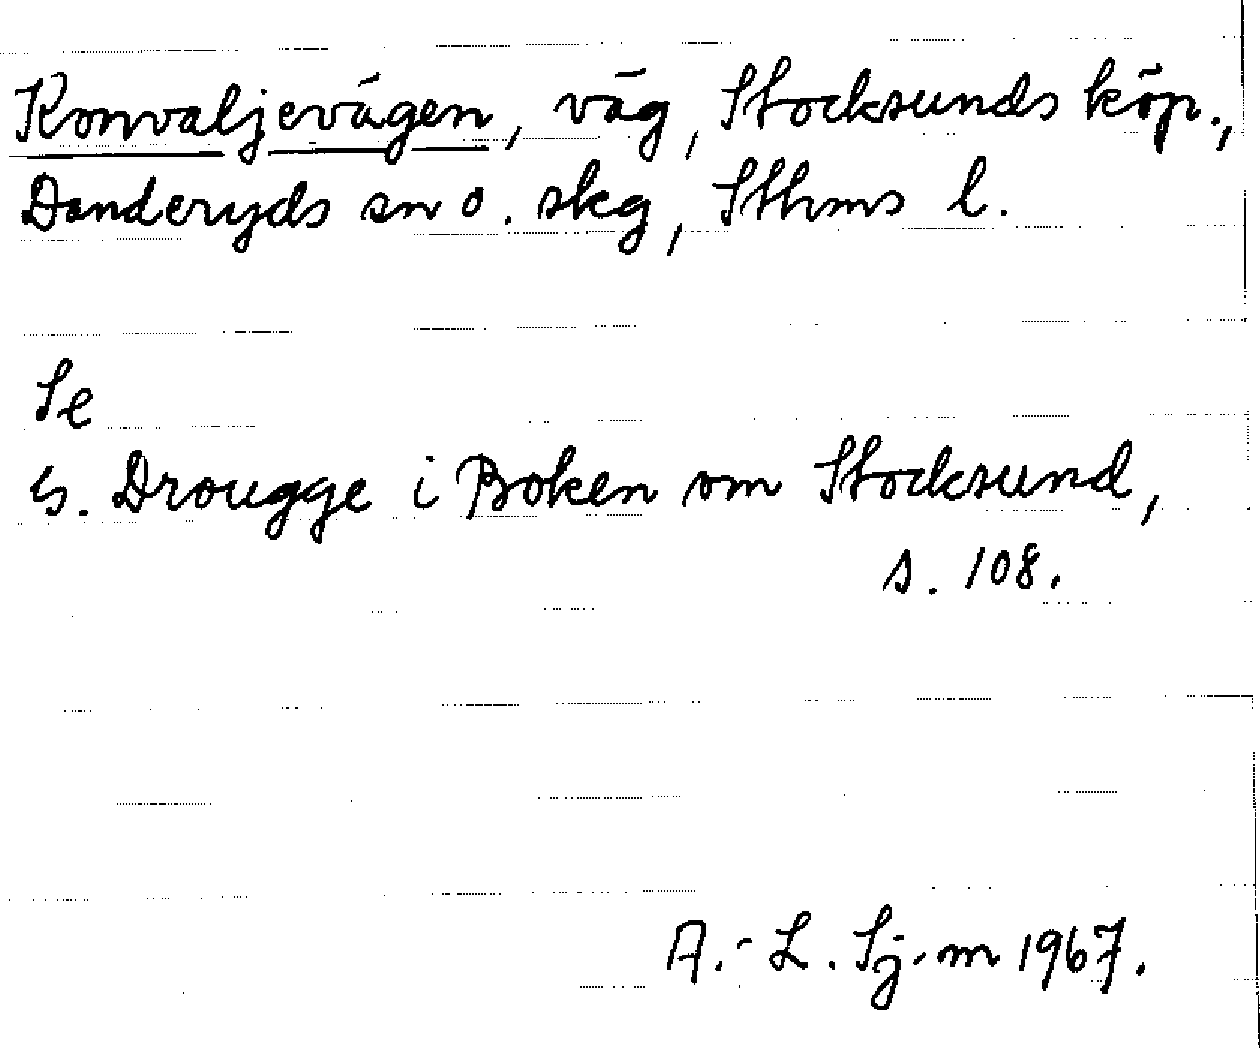 Konvaljevägen, väg, Stocksunds köp.,
Danderyds sn o. skg, Sthms l.
Se
G. Drougge i Boken om Stocksund,
s. 108.
A.-L. Sj-m 1967.